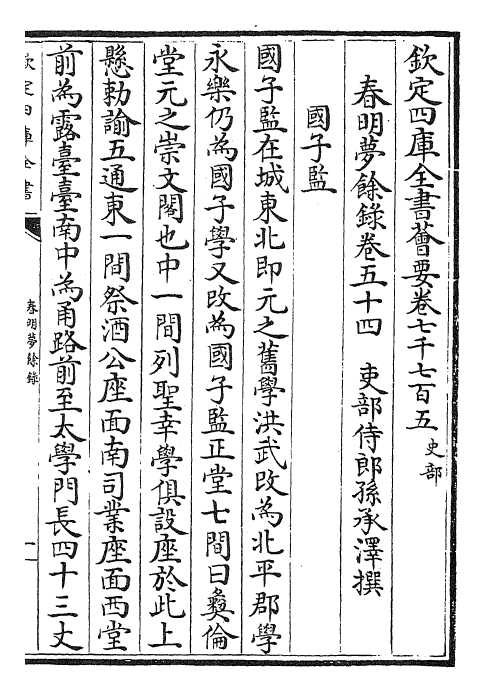 欽定四庫全書薈要卷七千七百五 史部
春明夢餘錄卷五十四 吏部侍郎孫承澤撰
國子監
國子監在城東北即元之舊學洪武改為北平郡學
永樂仍為國子學又改為國子監正堂七間曰彝倫
堂元之崇文閣也中一間列聖幸學俱設座於此上
懸勅諭五通東一間祭酒公座面南司業座面西堂
前為露臺臺南中為甬路前至太學門長四十三丈
欽定四庫全書
春明夢餘錄
一